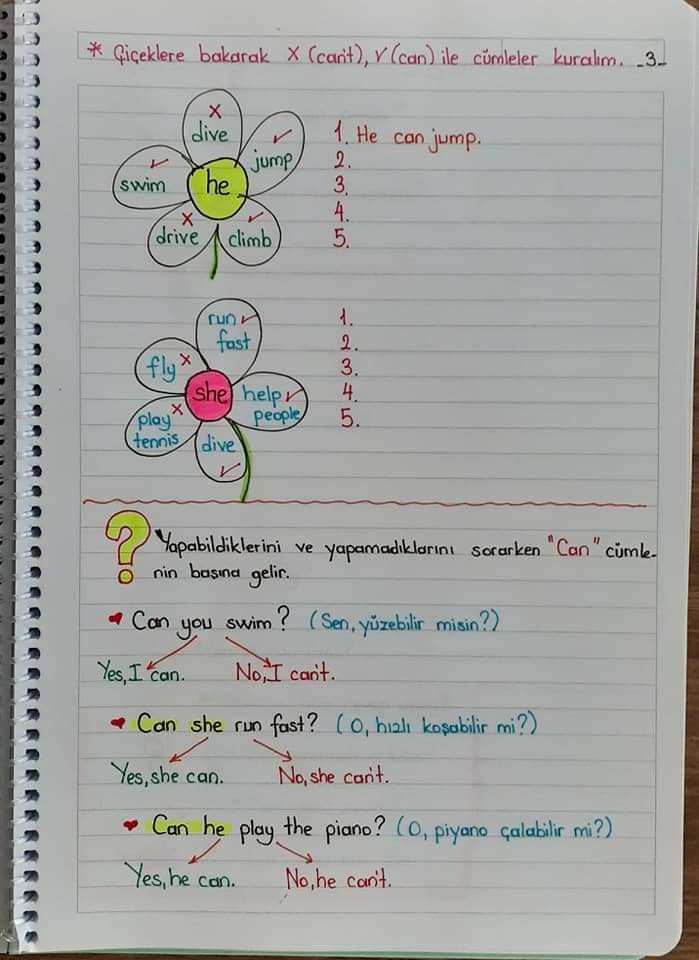 * Çiçeklere bakarak X (can't), √ (can) ile cümleler kuralım. -3-
X
dive
✓
jump
✓
swim
he
X
drive
✓
climb
1. He can jump.
2.
3.
4.
5.
run ✓
fast
fly X
she
help ✓
people
play X
tennis
dive
✓
1.
2.
3.
4.
5.
? Yapabildiklerini ve yapamadıklarını sorarken "Can" cümle-
nin başına gelir.
♥ Can you swim? (Sen, yüzebilir misin?)
Yes, I can. No, I can't.
♥ Can she run fast? (O, hızlı koşabilir mi?)
Yes, she can. No, she can't.
♥ Can he play the piano? (O, piyano çalabilir mi?)
Yes, he can. No, he can't.